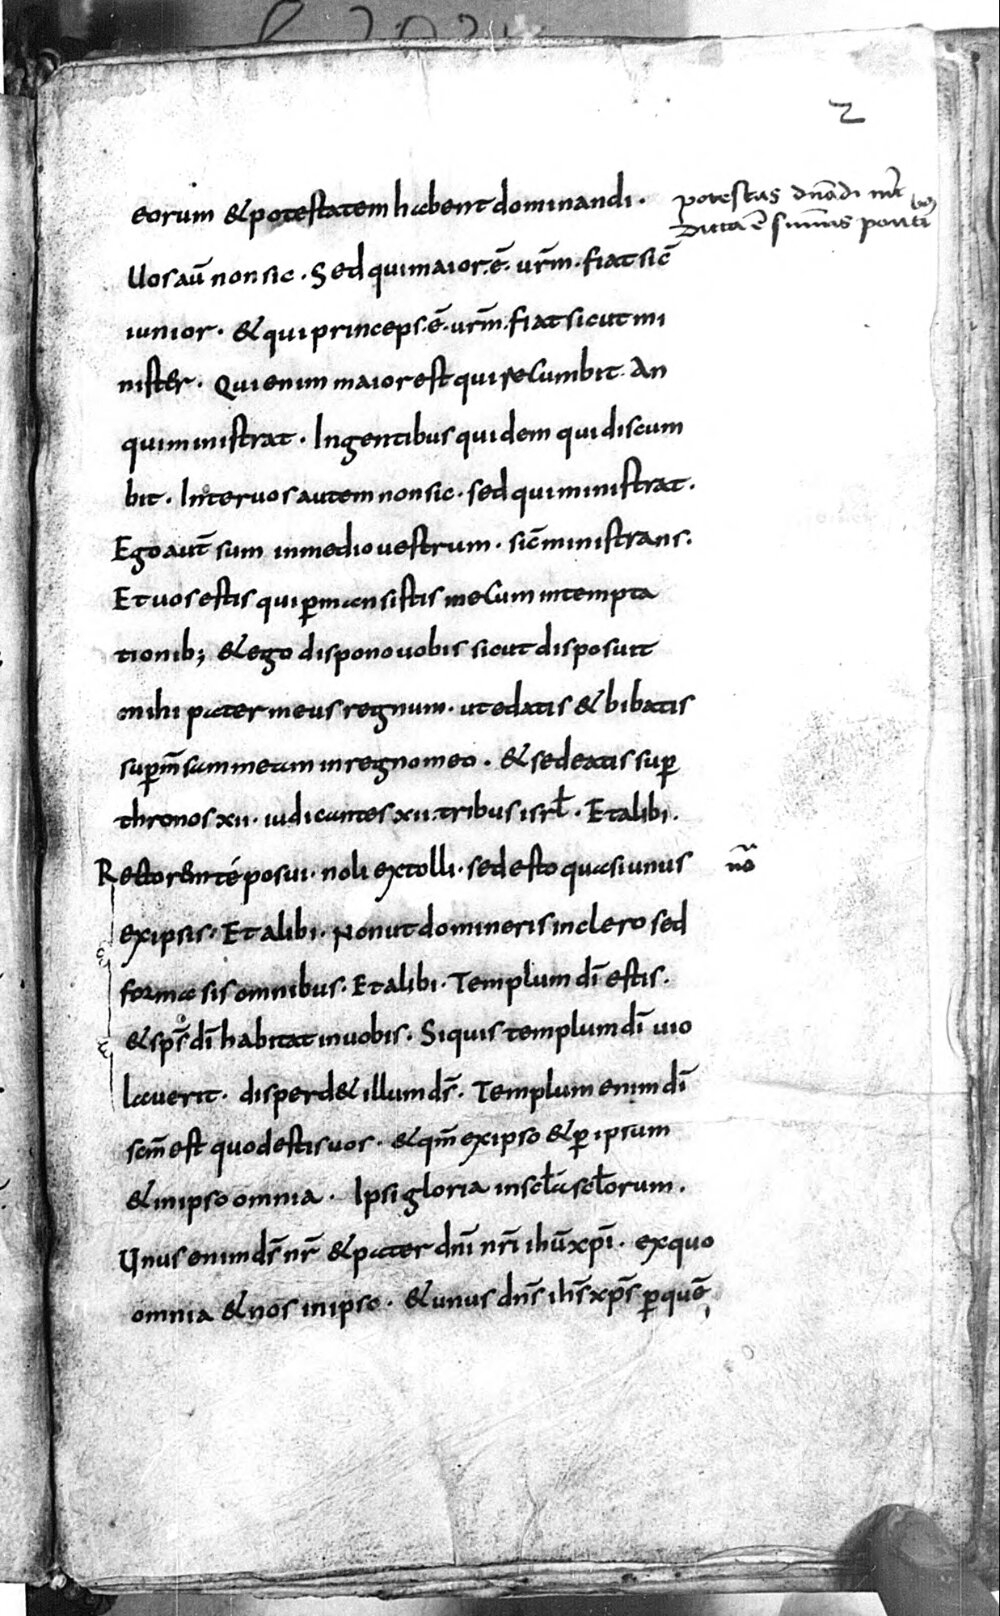 2
eorum & potestatem habent dominandi ·
potestas dn̄ādi
dicta ē summis
Uos aū non sic · Sed qui maior · ē · ur̄m · fiat sic̄
iunior · & qui princeps · ē · ur̄m · fiat sicut mi
nister · Qui enim maior est qui recumbit · An
qui ministrat · In gentibus quidem qui discum
bit · Inter uos autem non sic · sed qui ministrat ·
Ego aut̄ sum in medio uestrum · sic̄ ministrans ·
Et uos estis qui ꝑmansistis mecum in tempta
tionib; & ego dispono uobis sicut disposuit
mihi pater meus regnum · ut edatis & bibatis
suꝑ m̄sam meam in regno meo · & sedeatis suꝑ
thronos xii · iudicantes xii · tribus isrł · Et alibi ·
Rectorem te posui · noli extolli · sed esto quasi unus
no
ex ipsis · Et alibi · Non ut domineris in clero sed
forma sis omnibus · Et alibi · Templum dī estis ·
& sp̄s dī habitat in uobis · Siquis templum dī uio
lauerit · disperd& illum ds̄ · Templum enim dī
sc̄m est quod estis uos · & qm̄ ex ipso & ꝑ ipsum
& in ipso omnia · Ipsi gloria in scła scłorum ·
Unus enim ds̄ nr̄ & pater dn̄i nr̄i ihū xp̄i · ex quo
omnia & nos in ipso · & unus dn̄s ih̄s xp̄s ꝑ quē